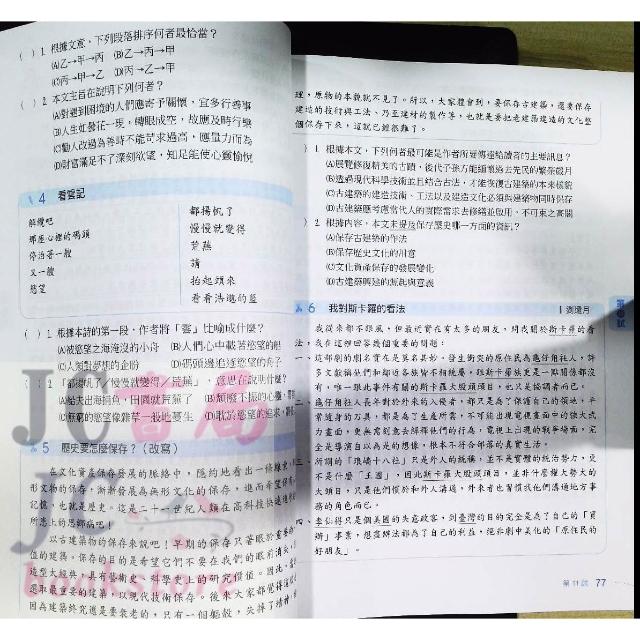 ( ) 1. 根據文意,下列段落排序何者最恰當?
(A)乙→甲→丙 (B)乙→丙→甲
(C)丙→甲→乙 (D)丙→乙→甲
( ) 2. 本文主旨在說明下列何者?
(A)對遭到困境的人們應寄予關懷,宜多行善事
(B)人生如曇花一現,轉眼成空,故應及時行樂
(C)勸人改過為善時不能苛求過高,應量力而為
(D)財富滿足不了深刻欲望,知足能使心靈愉悅
4 看雲記
解纜吧
那座心裡的碼頭
停泊著一艘
又一艘
慾望
都揚帆了
慢慢就變得
荒蕪
請
抬起頭來
看看浩邈的藍
( ) 1. 根據本詩的第一段,作者將「雲」比喻成什麼?
(A)被慾望之海淹沒的小舟 (B)人們心中載著慾望的船
(C)人類對夢想的企盼 (D)碼頭邊追逐慾望的舟子
( ) 2. 「都揚帆了/慢慢就變得/荒蕪」,意思在說明什麼?
(A)給夫出海捕魚,田園就荒蕪了 (B)頹廢不振的心靈,
(C)無窮的慾望像雜草一般地蔓生 (D)耽於慾望的追求,
5 歷史要怎麼保存?(改寫)
在文化資產保存發展的脈絡中,隱約地看出一條線索,
形文物的保存,漸漸發展為無形文化的保存,進而
記憶,也就是歷史。這是二十一世紀人類在高科技
所憑上的思鄉病吧!
以古建築物的保存來說吧!早期的保存只著眼於重要的
值的建築。保存的目的是希望它們不要在我們的眼前消失,
造型太經典,具有藝術史、科學史上的研究價值。因此,
選取最重要的建築,以現代技術保存。後來大家都覺得
因為建築終究還是要衰老的,只有一個軀殼,失掉了精神
理,原物的本貌就不見了。所以,大家體會到,要保存古建築,還要保存
建造的技術與工法、乃至建材的製作等,也就是要把老建築建造的文化整
個保存下來,這就已經很難了。
) 1. 根據本文,下列何者最可能是作者所要傳達給讀者的主要訊息?
(A)展覽修復精美的古蹟,後代子孫方能緬懷過去先民的繁榮歲月
(B)透過現代科學技術並且結合古法,才能恢復古建築的本來樣貌
(C)古建築的建造技術、工法以及建造文化必須與建築物同時保存
(D)古建築應考慮當代人的實際需求去修繕並啟用,不可束之高閣
) 2. 根據內容,本文未提及保存歷史哪一方面的資訊?
(A)保存古建築的作法
(B)保存歷史文化的用意
(C)文化資產保存的發展變化
(D)古建築興建的源起與意義
6 我對斯卡羅的看法
我從來都不跟風,但最近實在有太多的朋友,問我關於斯卡羅的看
法,我在這裡回答幾個重要的問題:
一、這部劇的劇名實在是莫名其妙。發生衝突的原住民為龜仔角社人,許
多文獻稱他們和鄰近各族皆不相統屬,跟斯卡羅族更是一點關係都沒
有,唯一跟此事件有關的斯卡羅大股頭頭目,也只是協調者而已。
二、龜仔角社人長年對外來的人侵者,都只是為了保護自己的領地,平
常隨身的刀具,都是為了生產所需,不可能出現電視畫面中的強大武
力畫面,更無需刻意去解釋他們的行為,電視上出現的戰爭場面,完
全是導演自以為是的想像,根本不符合部落的真實生活。
三、所謂的「瑯嶠十八社」只是外人的統稱,並不是實體的統治勢力,更
不是什麼「王國」,因此斯卡羅大股頭頭目,並非什麼偉大勢大的
大頭目,只是他們慣於和外人溝通,外來者也習慣找他們溝通地方事
務的角色而已。
四、李仙得只是個美國的失意政客,到臺灣的目的完全是為了自己的「買
辦」事業,想盡辦法都為了自己的利益,絕非劇中美化的「原住民的
好朋友」。
第11試 77
bookstore